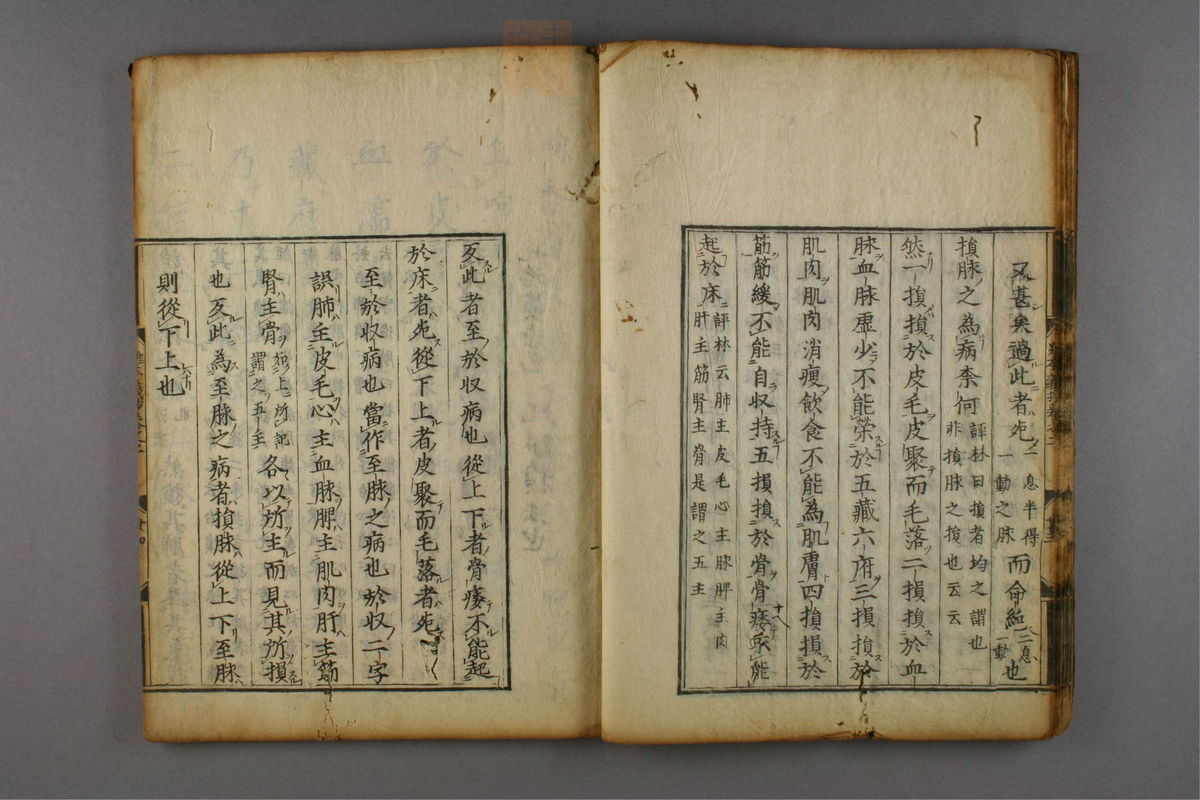 又甚矣過此者死一息半得一動之脉而命絶二三息一動也
損脉之為病奈何評林曰損者均之謂也非損脉之損也云云
然一損損於皮毛皮聚而毛落二損損於血
脉血脉虚少不能榮於五藏六府三損損於
肌肉肌肉消痩飲食不能為肌膚四損損於
筋筋緩不能自収持五損損於骨骨痿不能
起於床評林云肺主皮毛心主脉脾主肉肝主筋腎主骨是謂之五主
反此者至於収病也從上下者骨痿不能起
於床者死從下上者皮聚而毛落者死
至於収病也當作至脉之病也於収二字
誤肺主皮毛心主血脉脾主肌肉肝主筋
腎主骨如上所記謂之五主各以所主而見其所損
也反此為至脉之病者損脉從上下至脉
則從下上也